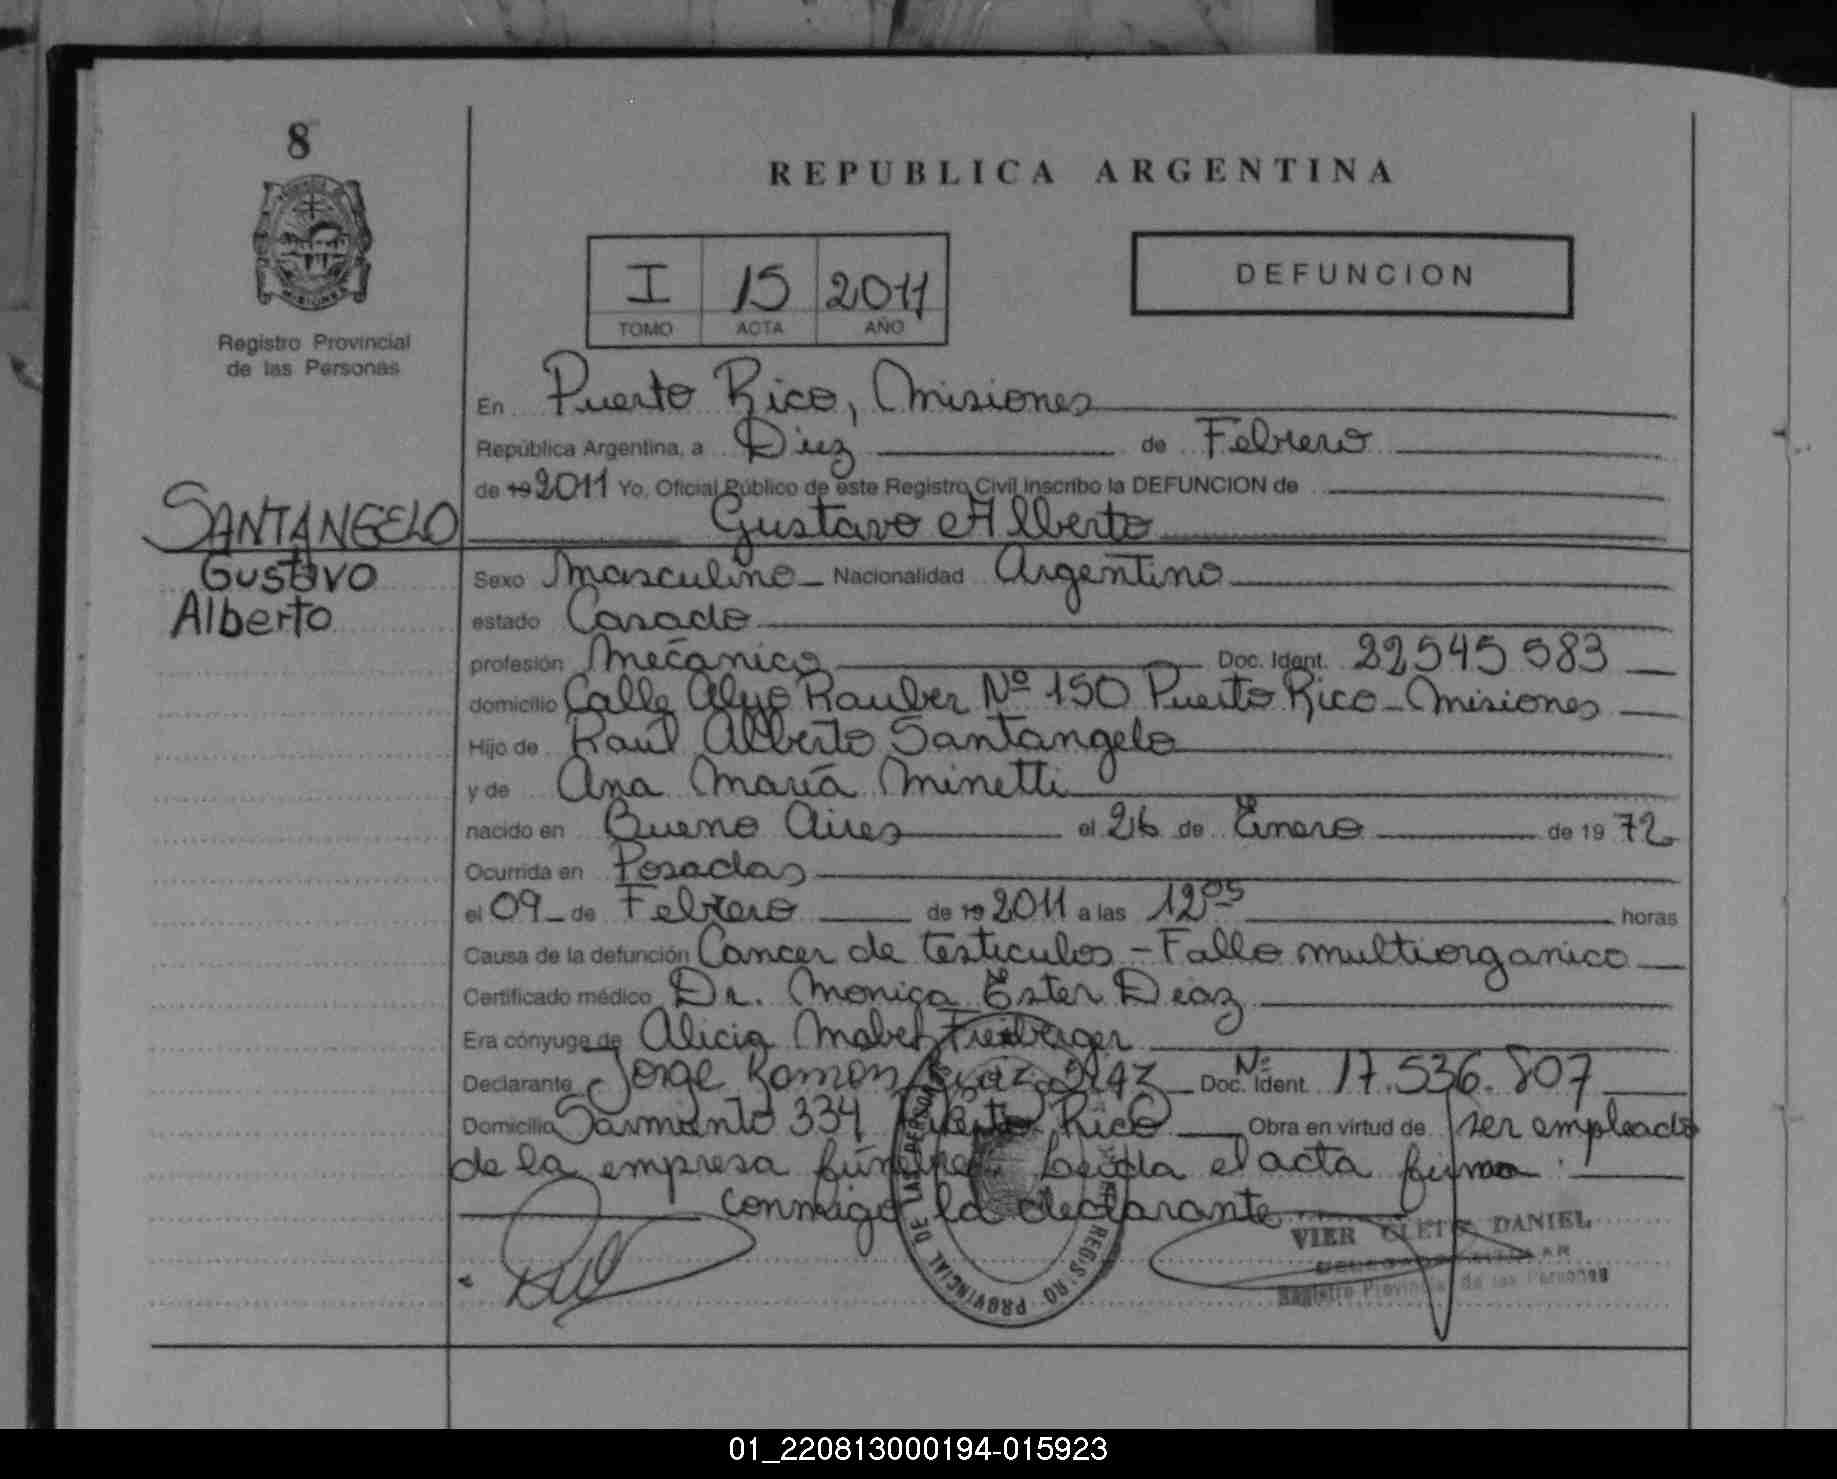 8
REPUBLICA ARGENTINA
I 15 2011
TOMO ACTA AÑO
DEFUNCION
MISIONES
Registro Provincial
de las Personas
En Puerto Rico, Misiones
República Argentina, a Diez de Febrero
de 19 2011 Yo, Oficial Público de este Registro Civil inscribo la DEFUNCION de
SANTANGELO Gustavo Alberto
Gustavo
Alberto
Sexo Masculino Nacionalidad Argentino
estado Casado
profesión Mecánico Doc. Ident. 22545583
domicilio Calle Rauber Nº 150 Puerto Rico - Misiones
Hijo de Raúl Alberto Santangelo
y de Ana María Minetti
nacido en Bueno Aires el 26 de Enero de 1972
Ocurrida en Posadas
el 09 de Febrero de 19 2011 a las 12 05 horas
Causa de la defunción Cancer de testiculos - Fallo multiorganico
Certificado médico Dr. Moniça Ester Deaz
Era cónyuge de Alicia Mabel Freiberger
Declarante Jorge Ramon Doc. Nº Ident. 17.536.807
Domicilio Sarmiento 334 Puerto Rico Obra en virtud de ser empleado
de la empresa fúnebre. Leida el acta firma
conmigo la declarante
VIER DANIEL
Registro Provincial de las Personas
REGISTRO PROVINCIAL DE LAS PERSONAS
01_220813000194-015923